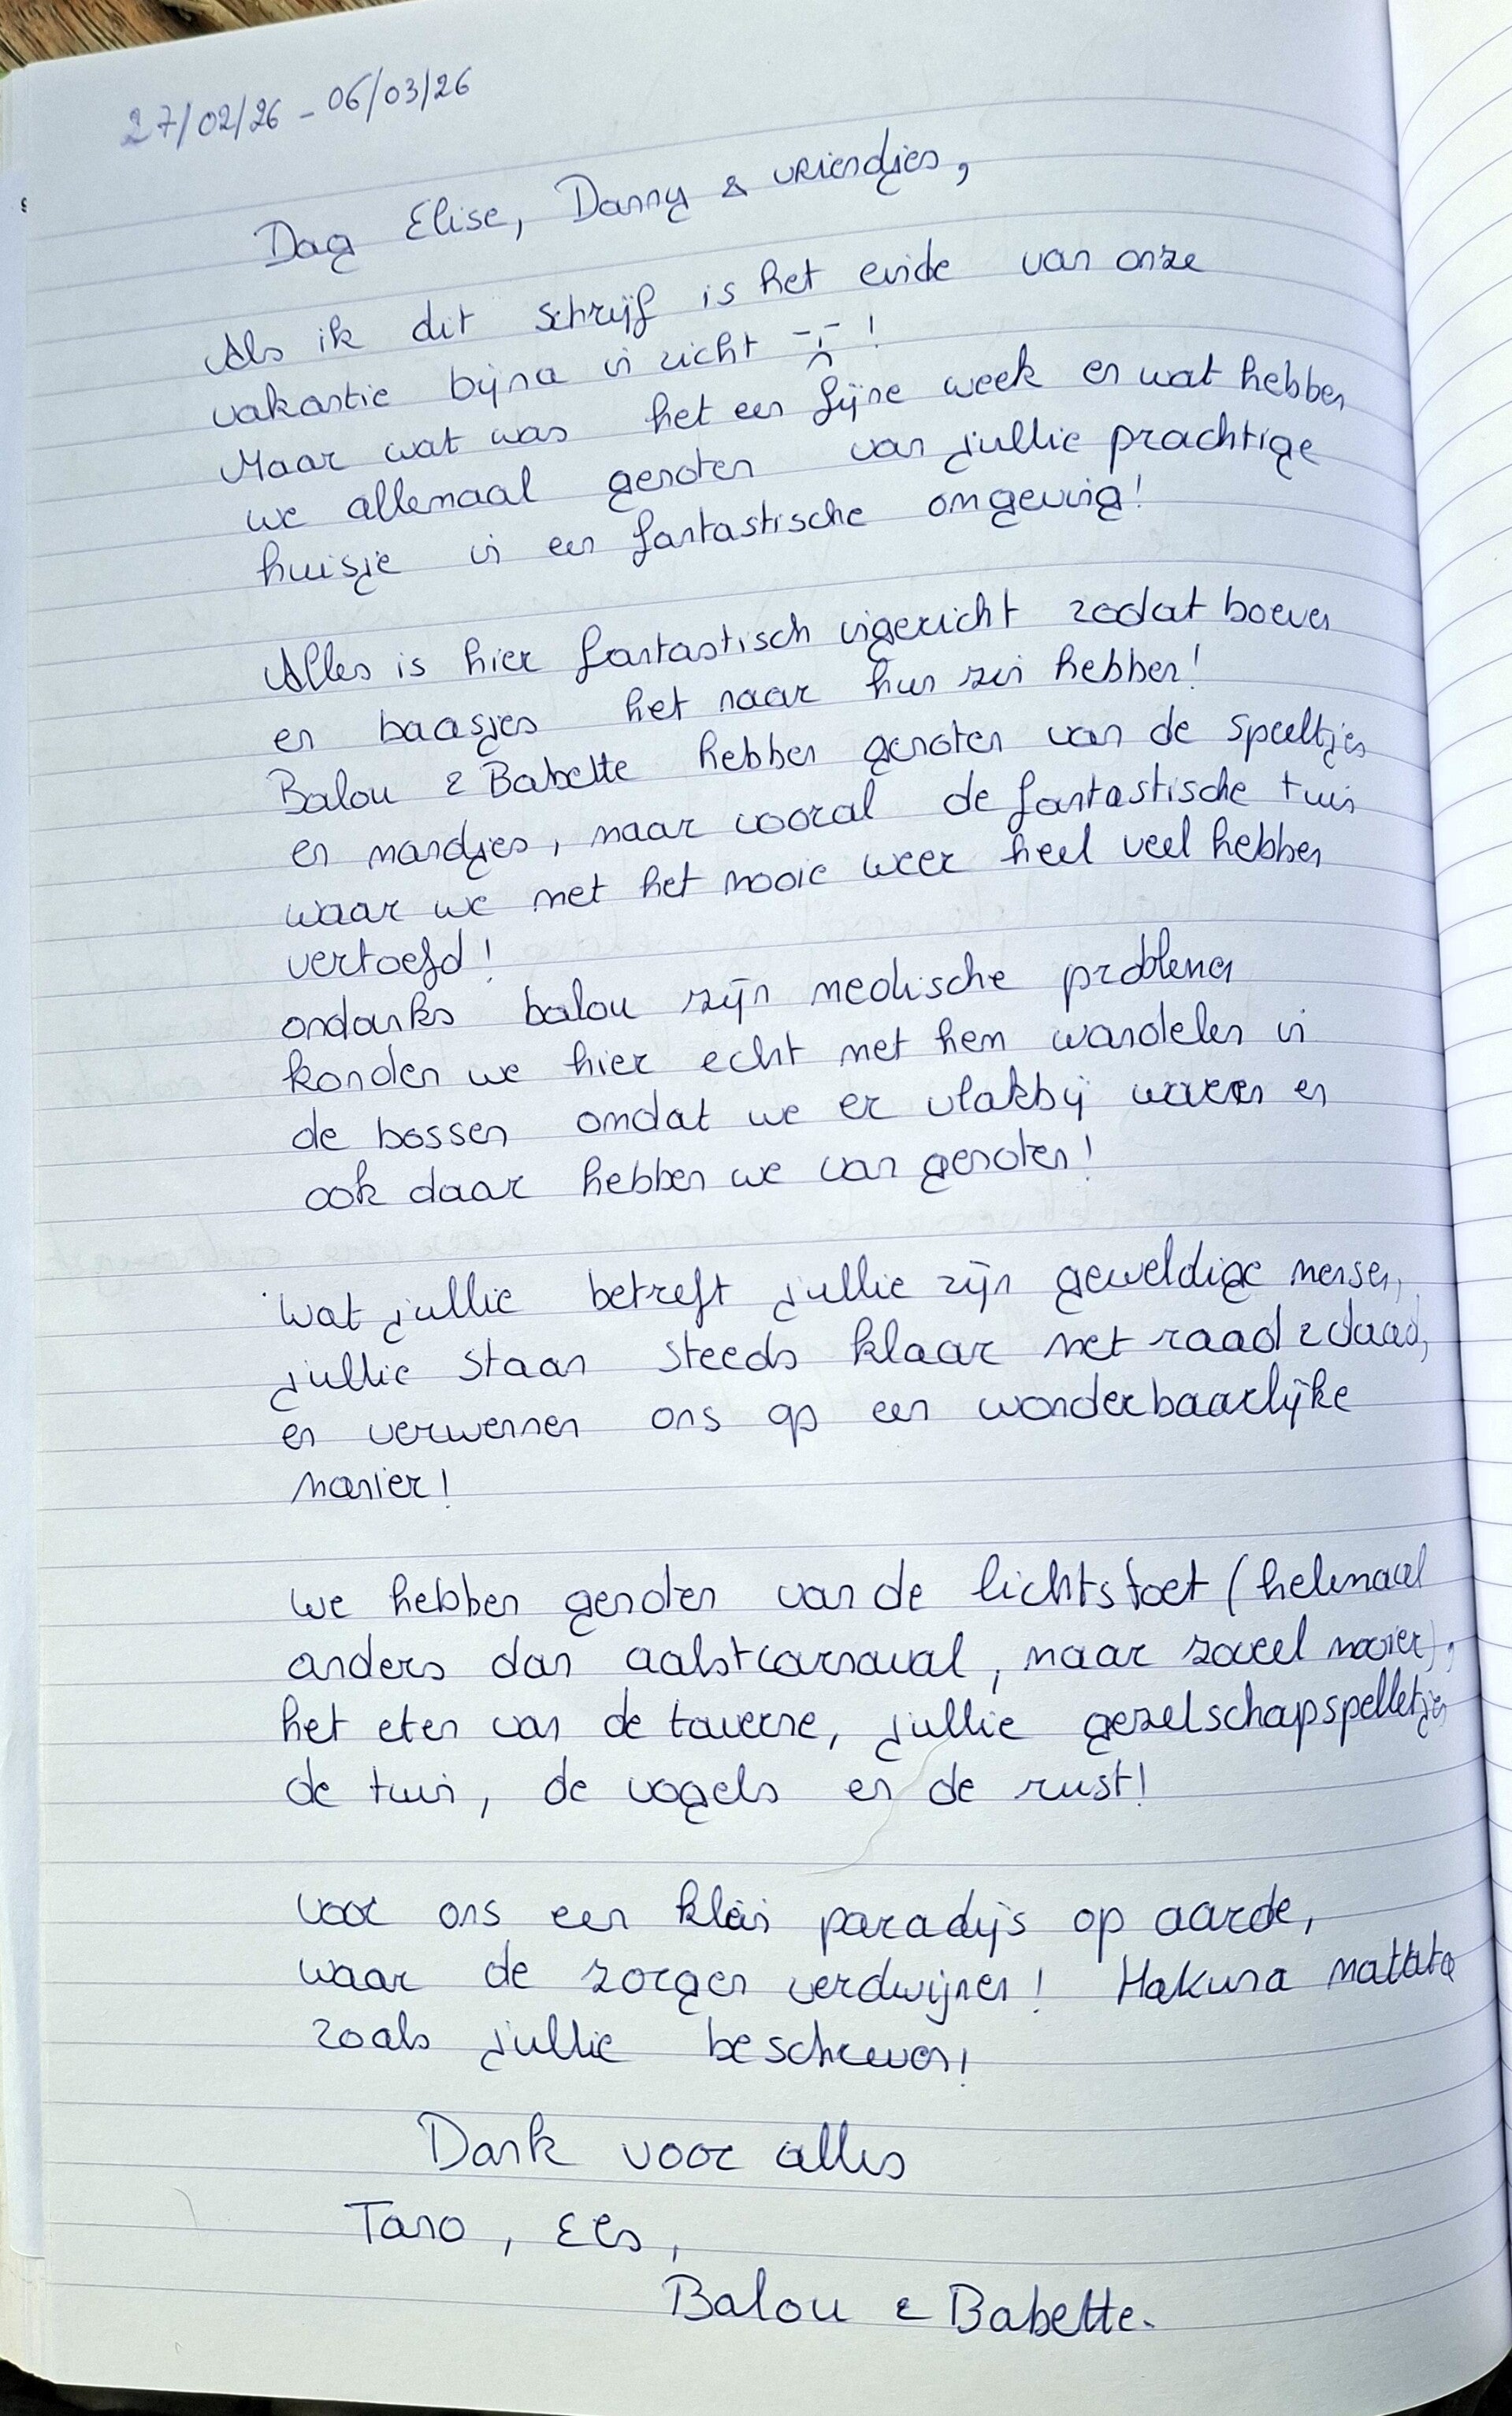 27/02/26 - 06/03/26
Dag Elise, Danny & vriendjes,
Als ik dit schrijf is het einde van onze
vakantie bijna in zicht !
Maar wat was het een fijne week en wat hebben
we allemaal genoten van jullie prachtige
huisje in een fantastische omgeving!
Alles is hier fantastisch ingericht zodat boeven
en baasjes het naar hun zin hebben!
Balou & Babette hebben genoten van de speeltjes
en mandjes, maar vooral de fantastische tuin
waar we met het mooie weer heel veel hebben
vertoefd!
ondanks balou zijn medische problemen
konden we hier echt met hem wandelen in
de bossen omdat we er vlakbij waren en
ook daar hebben we van genoten!
Wat jullie betreft jullie zijn geweldige mensen,
jullie staan steeds klaar met raad & daad,
en verwennen ons op een wonderbaarlijke
manier!
We hebben genoten van de lichtstoet (helemaal
anders dan aalstcarnaval, maar zoveel mooier),
het eten van de taverne, jullie gezelschapspelletjes
de tuin, de vogels en de rust!
Voor ons een klein paradijs op aarde,
waar de zorgen verdwijnen! Hakuna mattata
zoals jullie beschreven!
Dank voor alles
Tano, Els,
Balou & Babette.